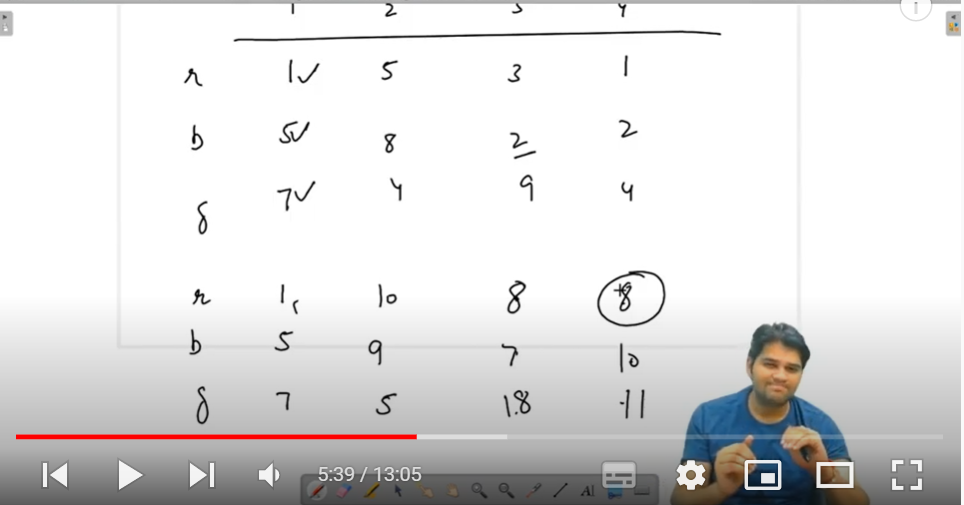 1 2 3 4
r 1✓ 5 3 1
b 5✓ 8 2 2
g 7✓ 4 9 4
r 1, 10 8 +8
b 5 9 7 10
g 7 5 18 11
5:39 / 13:05
A